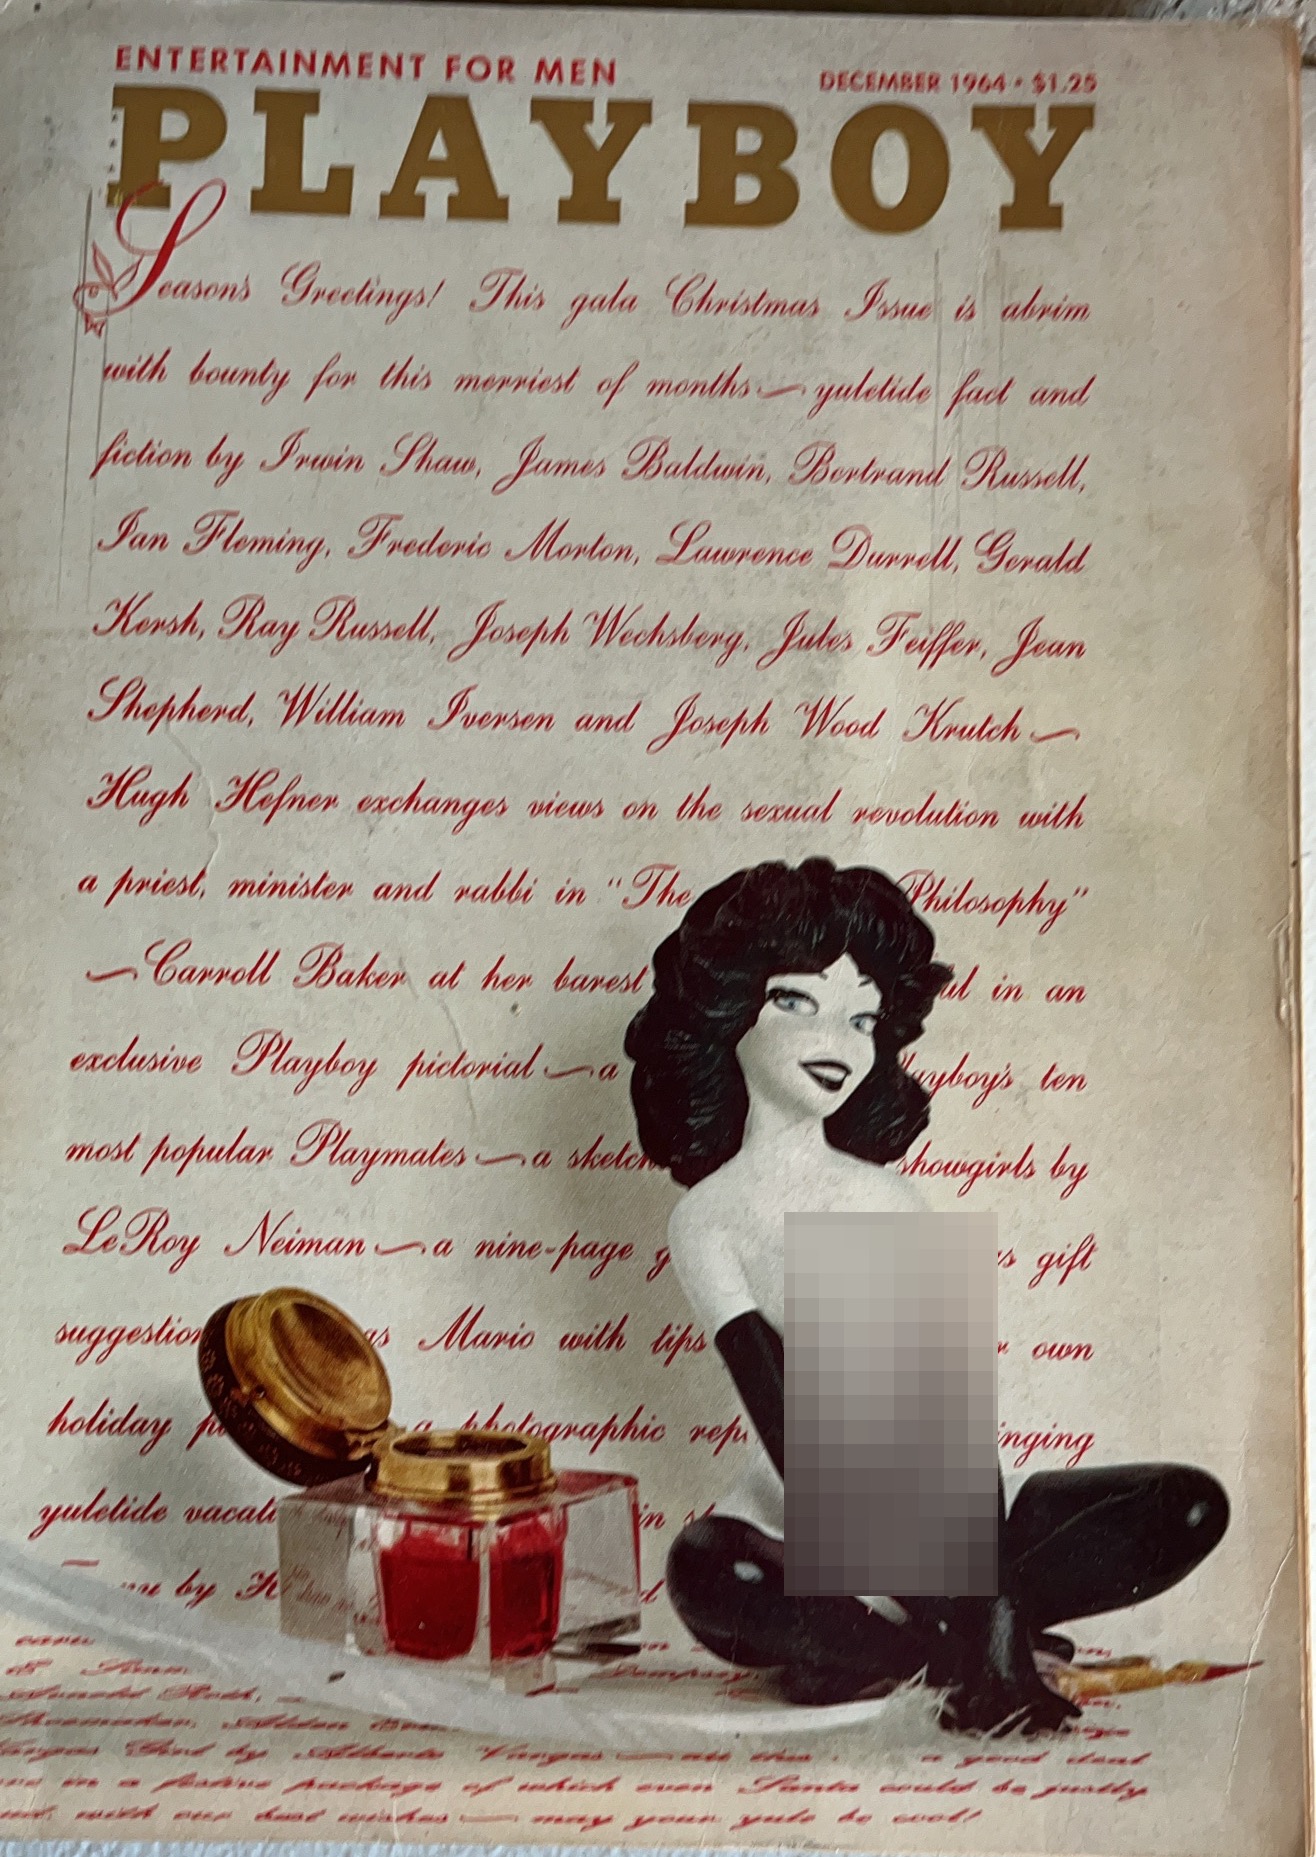 ENTERTAINMENT FOR MEN
DECEMBER 1964 • $1.25
PLAYBOY
Season's Greetings! This gala Christmas Issue is abrim
with bounty for this merriest of months—yuletide fact and
fiction by Irwin Shaw, James Baldwin, Bertrand Russell,
Ian Fleming, Frederic Morton, Lawrence Durrell, Gerald
Kersh, Ray Russell, Joseph Wechsberg, Jules Feiffer, Jean
Shepherd, William Iversen and Joseph Wood Krutch—
Hugh Hefner exchanges views on the sexual revolution with
a priest, minister and rabbi in "The Philosophy"
—Carroll Baker at her barest in an
exclusive Playboy pictorial—a ten
most popular Playmates—a showgirls by
LeRoy Neiman—a nine-page gift
Mario with tips own
holiday a photographic
yuletide
by
Vargas Girl by Alberto Vargas—all this a good deal
in a festive package of which even Santa would be justly
with our best wishes—may your yule be cool!